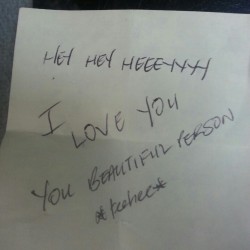 HEY HEY HEEE-YYY
I LOVE YOU
YOU BEAUTIFUL PERSON
*teehee*